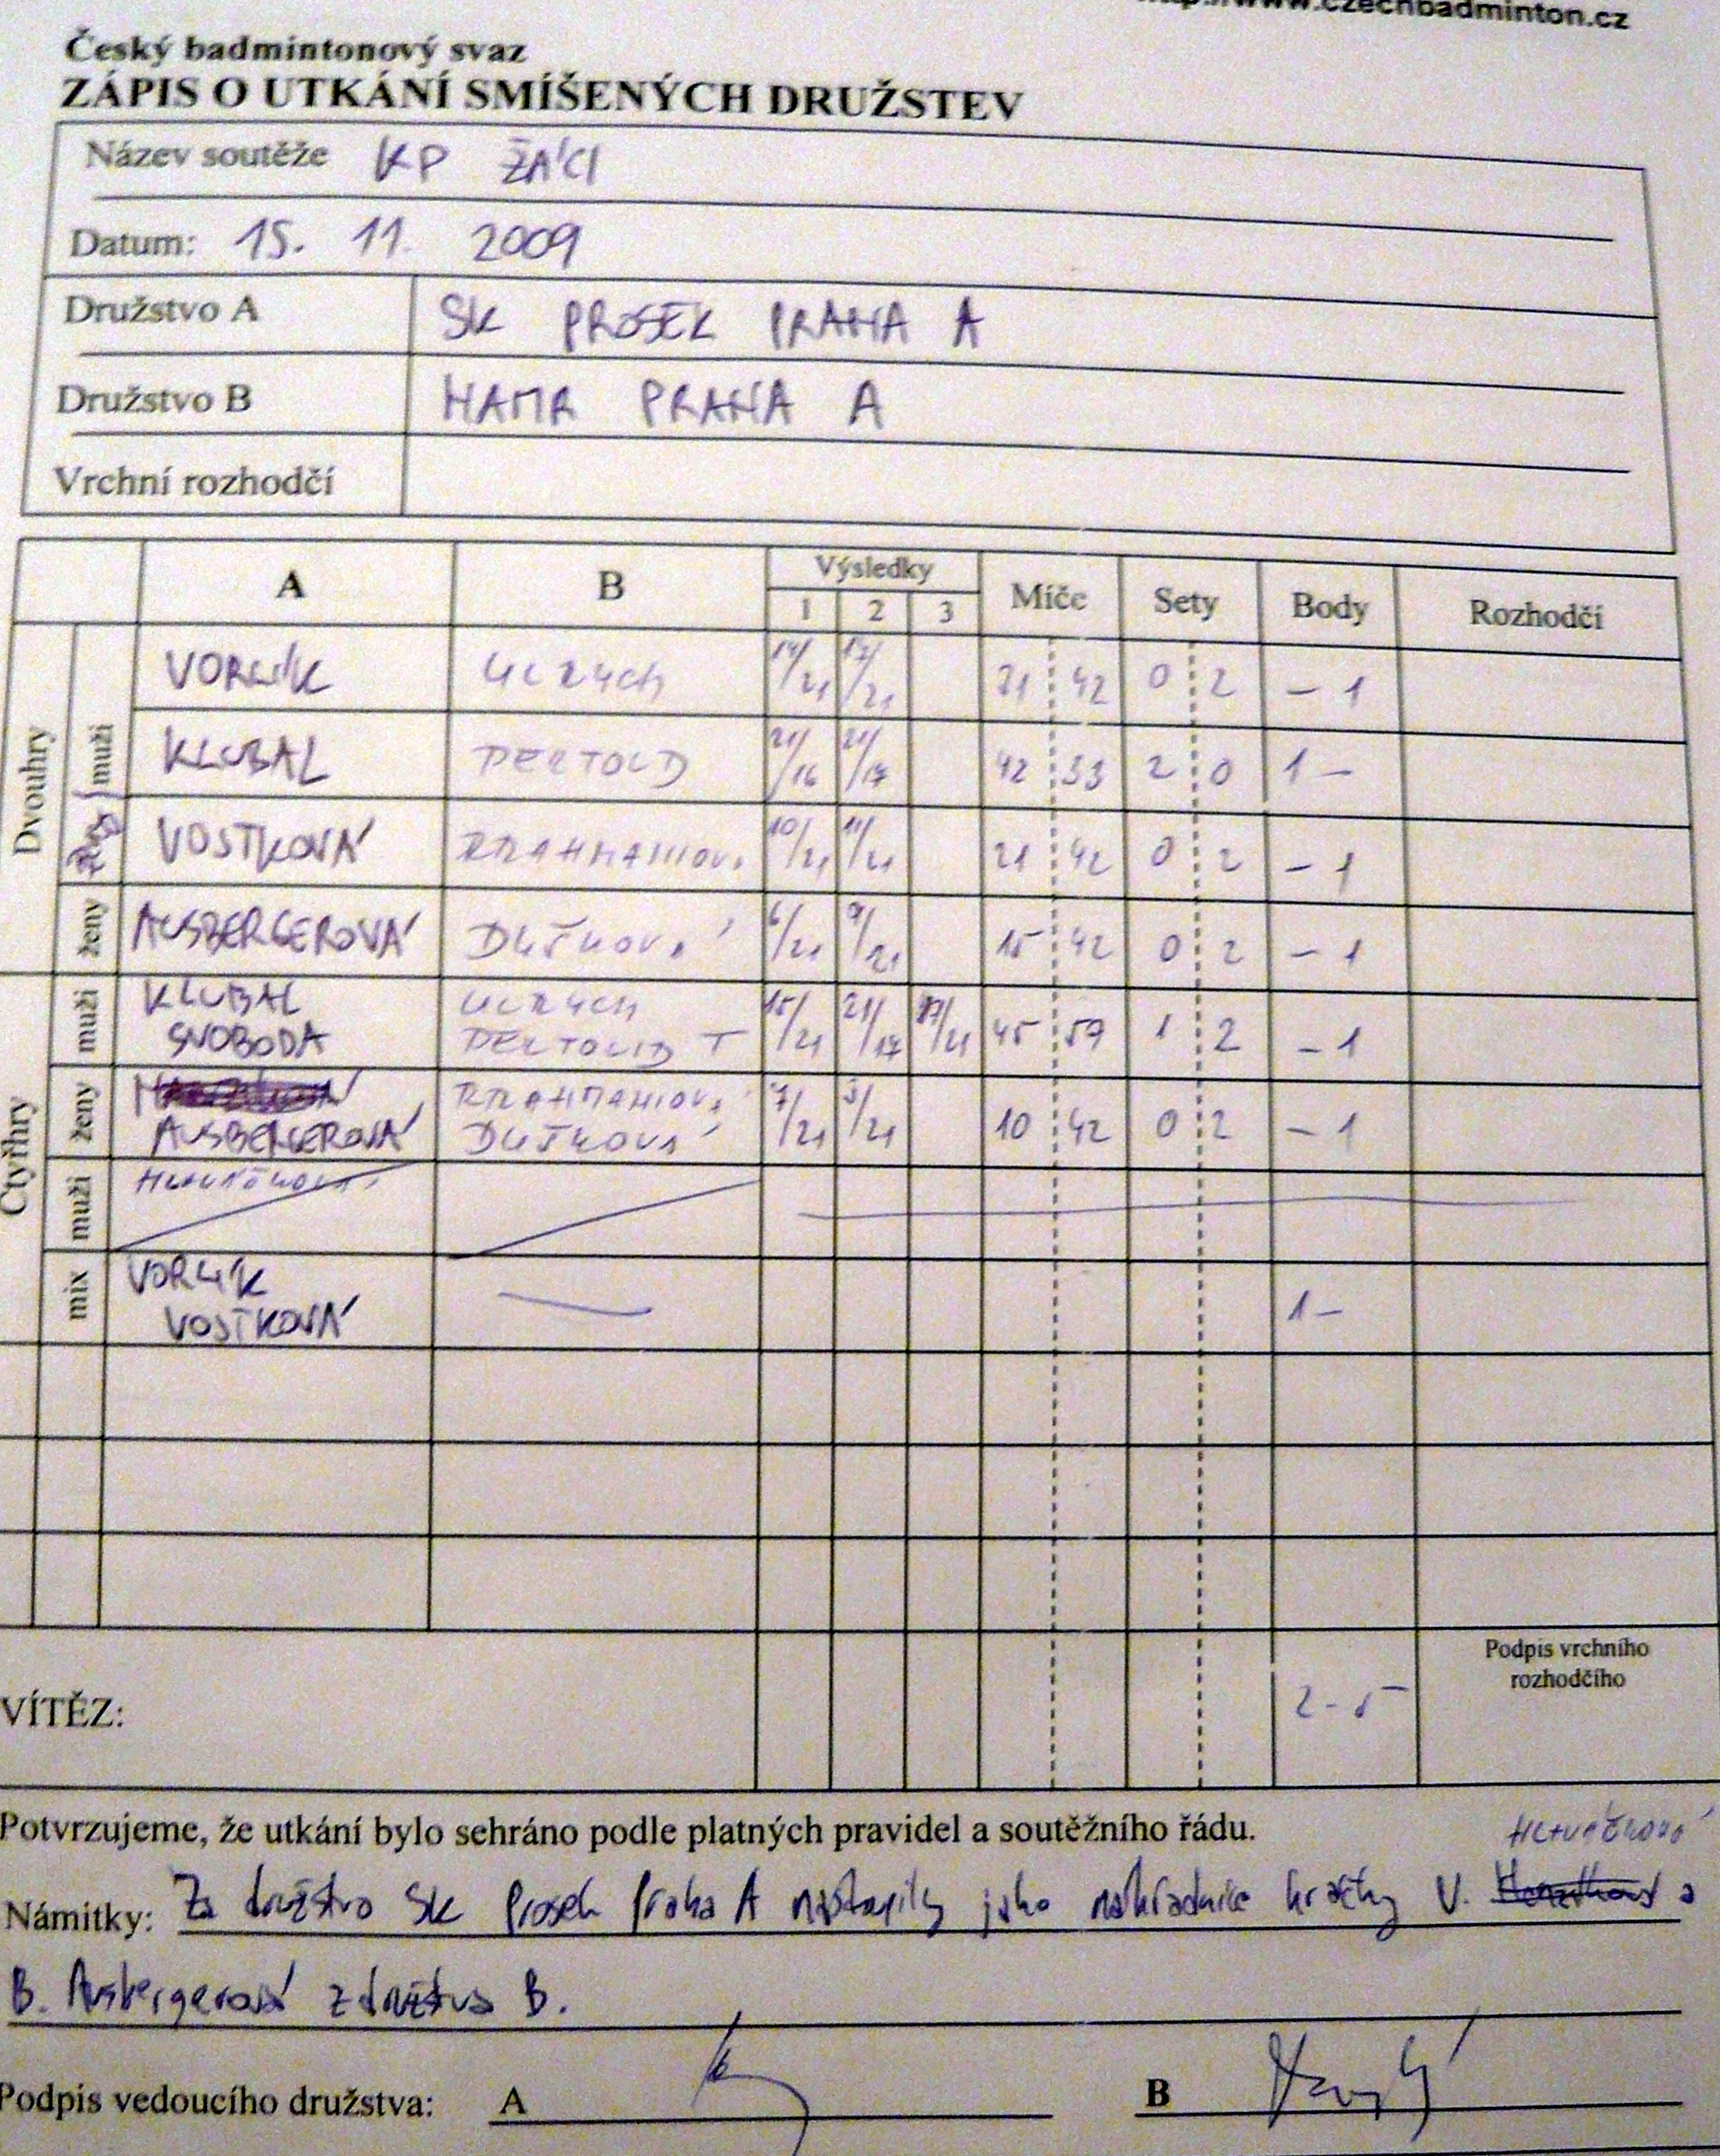 http://www.czechbadminton.cz
Český badmintonový svaz
ZÁPIS O UTKÁNÍ SMÍŠENÝCH DRUŽSTEV
Název soutěže KP ŽÁCI
Datum: 15. 11. 2009
Družstvo A SK PROSEK PRAHA A
Družstvo B HAMR PRAHA A
Vrchní rozhodčí
A B Výsledky Míče Sety Body Rozhodčí
1 2 3
Dvouhry
muži VORLÍK ULRYCH 14/21 17/21 31 42 0 2 - 1
KLUBAL PERTOLD 21/16 21/17 42 33 2 0 1 -
VOSTKOVÁ 10/21 11/21 21 42 0 2 - 1
ženy AUSBERGEROVÁ DUŠKOVÁ 6/21 9/21 15 42 0 2 - 1
Čtyřhry
muži KLUBAL ULRYCH 15/21 21/17 /21 45 59 1 2 - 1
SVOBODA PERTOLD T
ženy 7/21 3/21 10 42 0 2 - 1
AUSBERGEROVÁ DUŠKOVÁ
muži
mix VORLÍK 1 -
VOSTKOVÁ
VÍTĚZ: 2 - 5 Podpis vrchního
rozhodčího
Potvrzujeme, že utkání bylo sehráno podle platných pravidel a soutěžního řádu.
Námitky: Za družstvo SK Prosek Praha A nastoupily jako náhradnice hráčky V. a
B. Ausbergerová z družstva B.
Podpis vedoucího družstva: A B